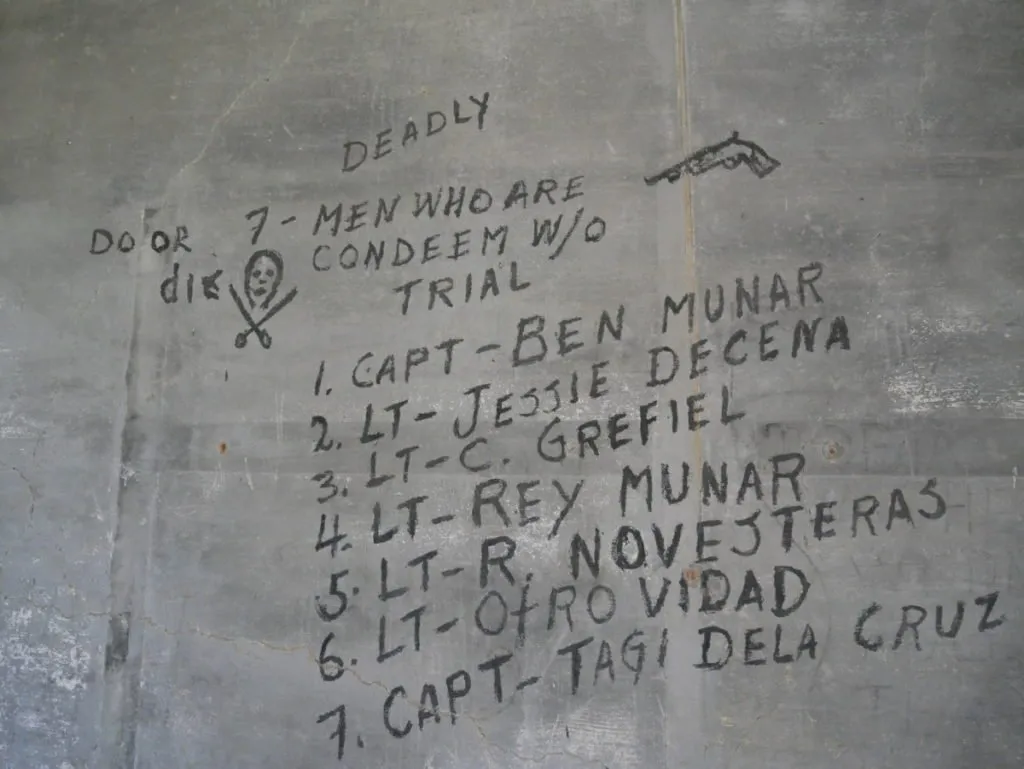 DEADLY
7 - MEN WHO ARE
CONDEEM W/O
TRIAL
DO OR
die
1. CAPT - BEN MUNAR
2. LT - JESSIE DECENA
3. LT - C. GREFIEL
4. LT - REY MUNAR
5. LT - R. NOVESTERAS
6. LT - OTRO VIDAD
7. CAPT - TAGI DELA CRUZ